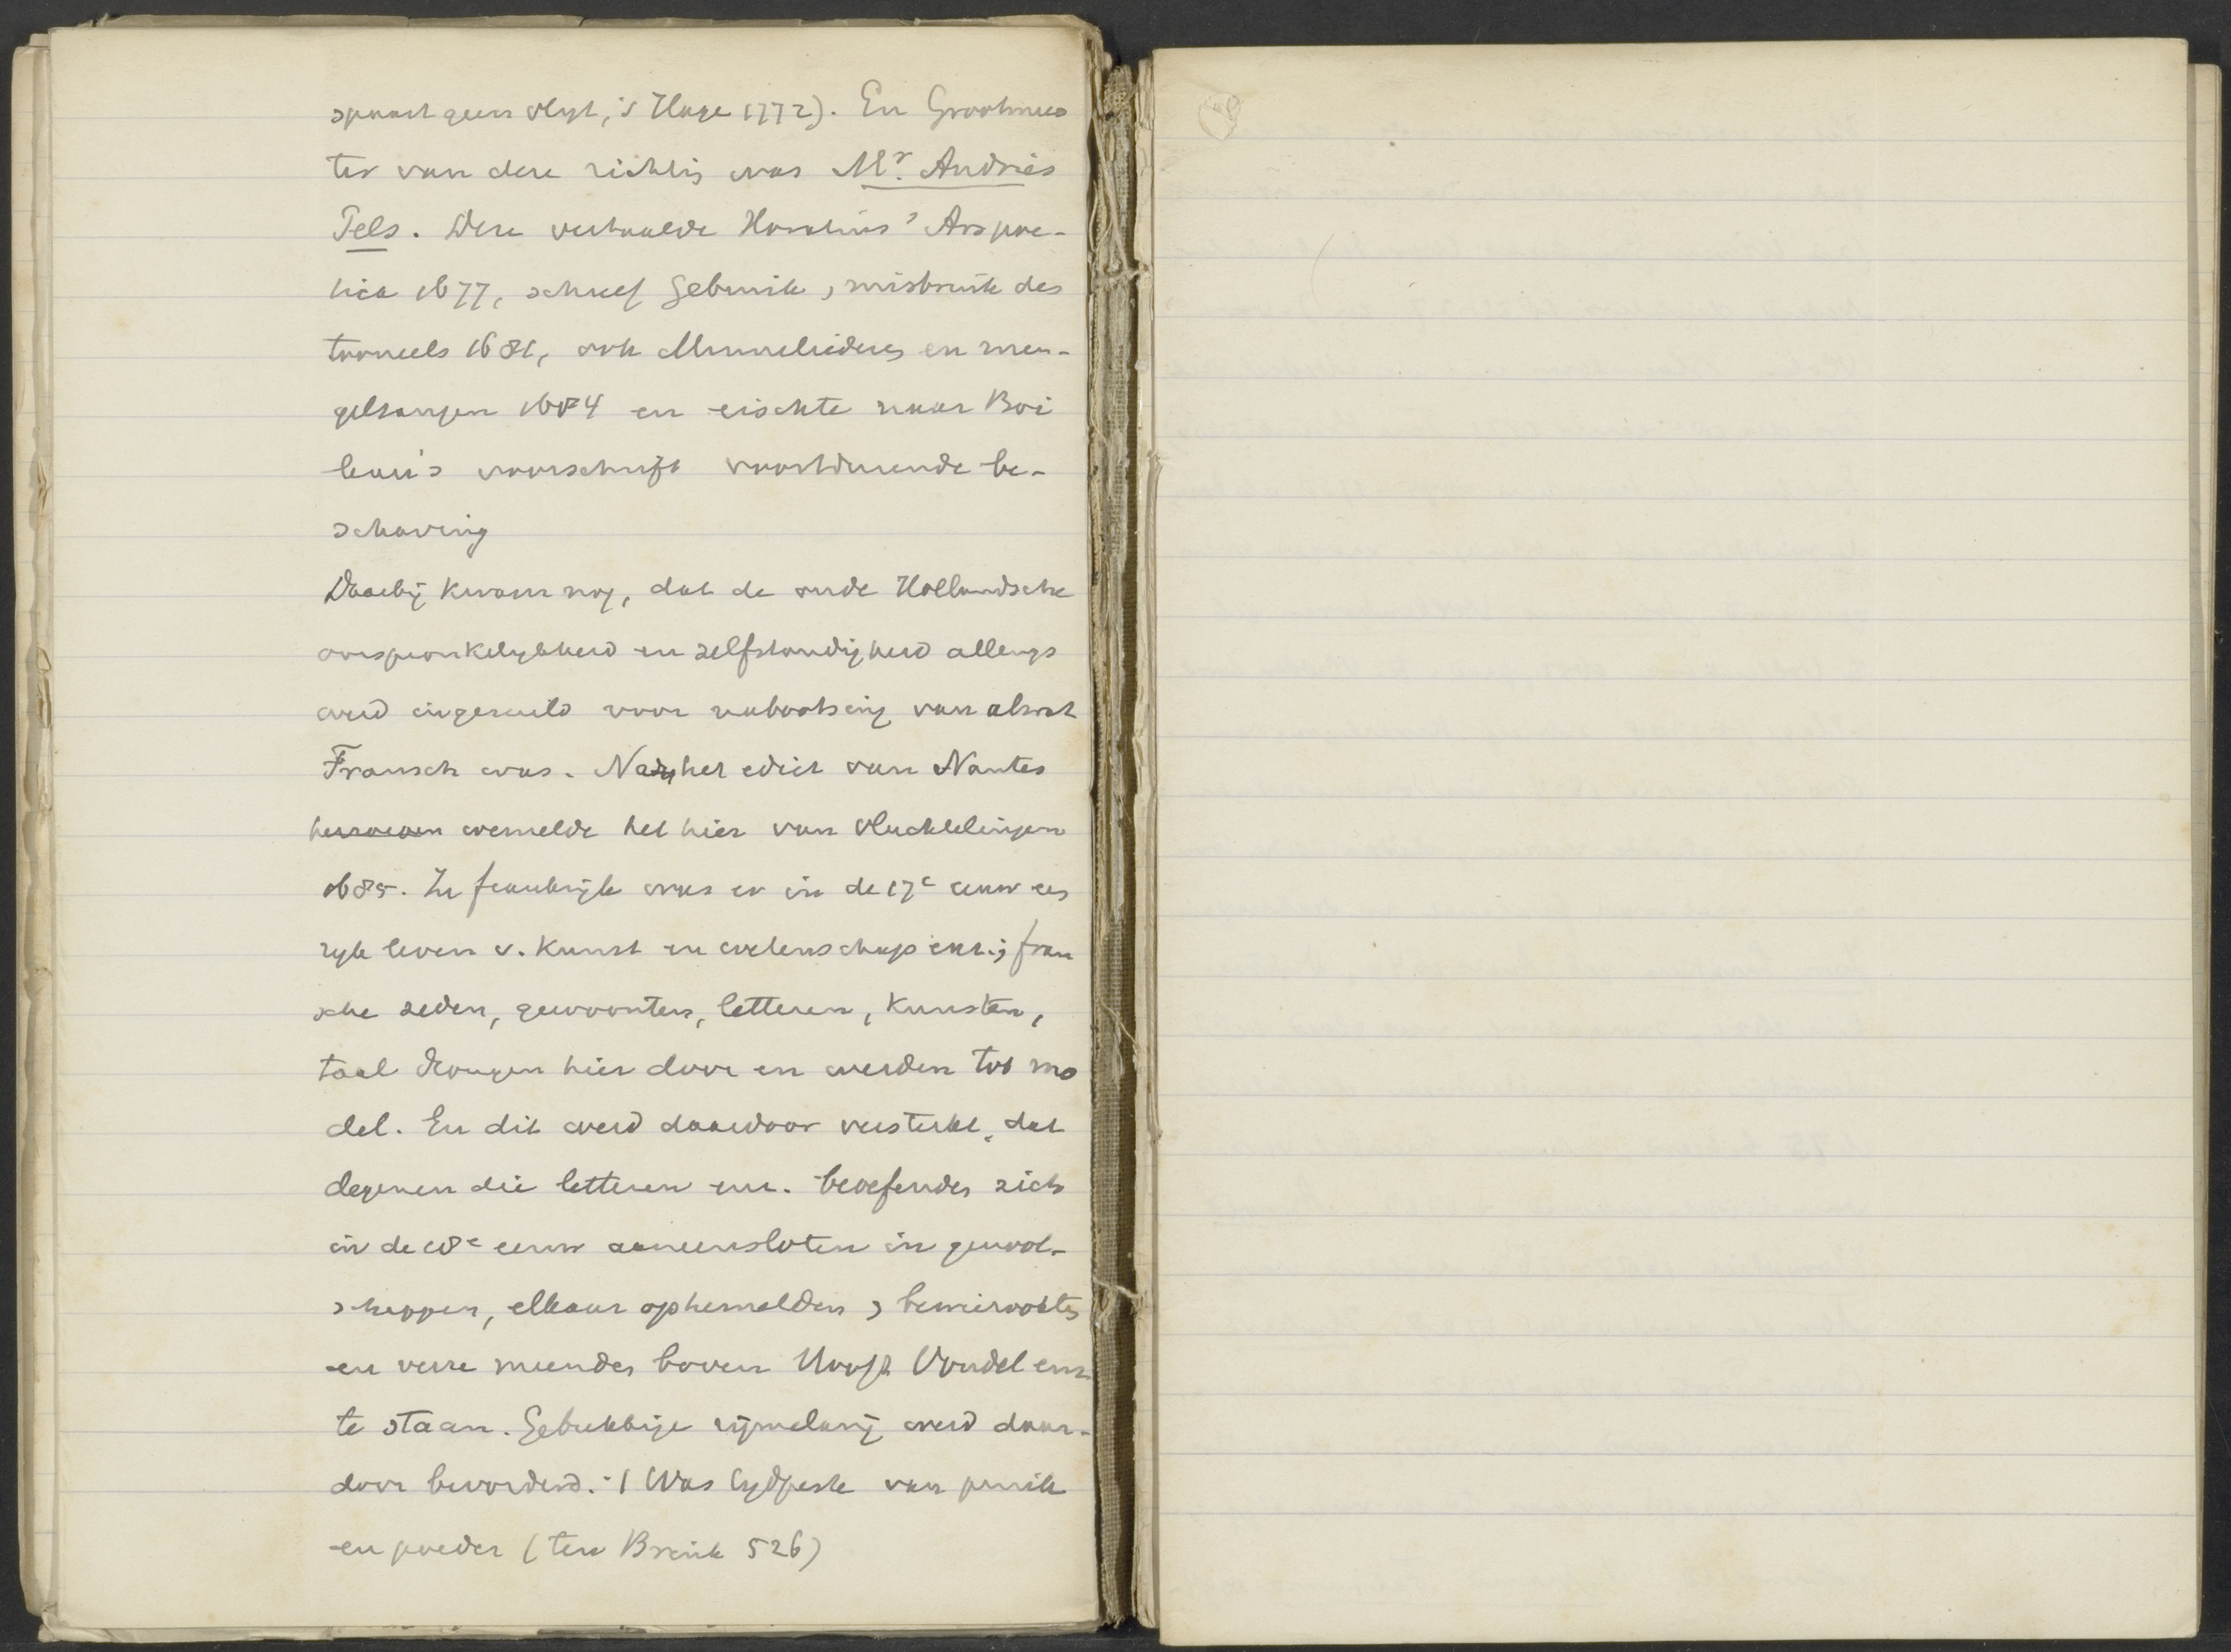 spaart geen vlyt, 's Hage 1772). En Grootmees
ter van deze richting was Mr. Andries
Pels. Deze vertaalde Horatius' Ars poe-
tica 1677, schreef Gebruik, misbruik des
tooneels 1681, ook Minneliederen en men-
gelzangen 1684 en eischte naar Boi
leau's voorschrift voortdurende be-
schaving
Daarbij kwam nog, dat de oude Hollandsche
oorspronkelykheid en zelfstandigheid allengs
werd ingeruild voor nabootsing van alwat
Fransch was. Na het edict van Nantes
herroepen wemelde het hier van vluchtelingen
1685. In frankrijk was er in de 17e eeuw een
ryk leven v. Kunst en wetenschap enz.; fran
sche zeden, gewoonten, letteren, Kunsten,
taal drongen hier door en werden tot mo
del. En dit werd daardoor versterkt, dat
degenen die letteren enz. beoefenden zich
in de 18e eeuw aaneensloten in genoot-
schappen, elkaar ophemelden, bewierookten
en verre meenden boven Hooft Vondel enz.
te staan. Gebrekkige rijmelarij werd daar-
door bevorderd. -| Was tydperk van pruik
en poeder (ten Brink 526)